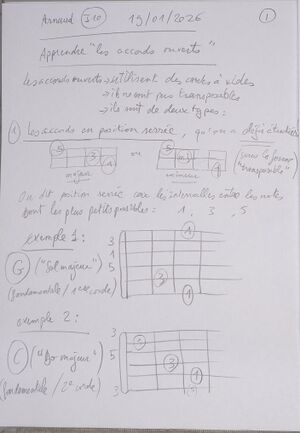 Arnaud J10 19/01/2026 1
Apprendre "les accords ouverts"
Les accords ouverts → utilisent des cordes à vides
→ ils ne sont pas transposables
→ ils sont de deux types :
1 Les accords en position serrée, qu'on a déjà étudiés
5 3 1 ou 5 1 (sous la forme
majeur mineur "transposable")
On dit position serrée car les intervalles entre les notes
sont les plus petits possibles : 1, 3, 5
exemple 1 :
1
3
1
G ("Sol majeur") 5
(fondamentale / 1ère corde) 3
1
exemple 2 :
3
C ("Do majeur") 5
3
1
(fondamentale / 2e corde) 3